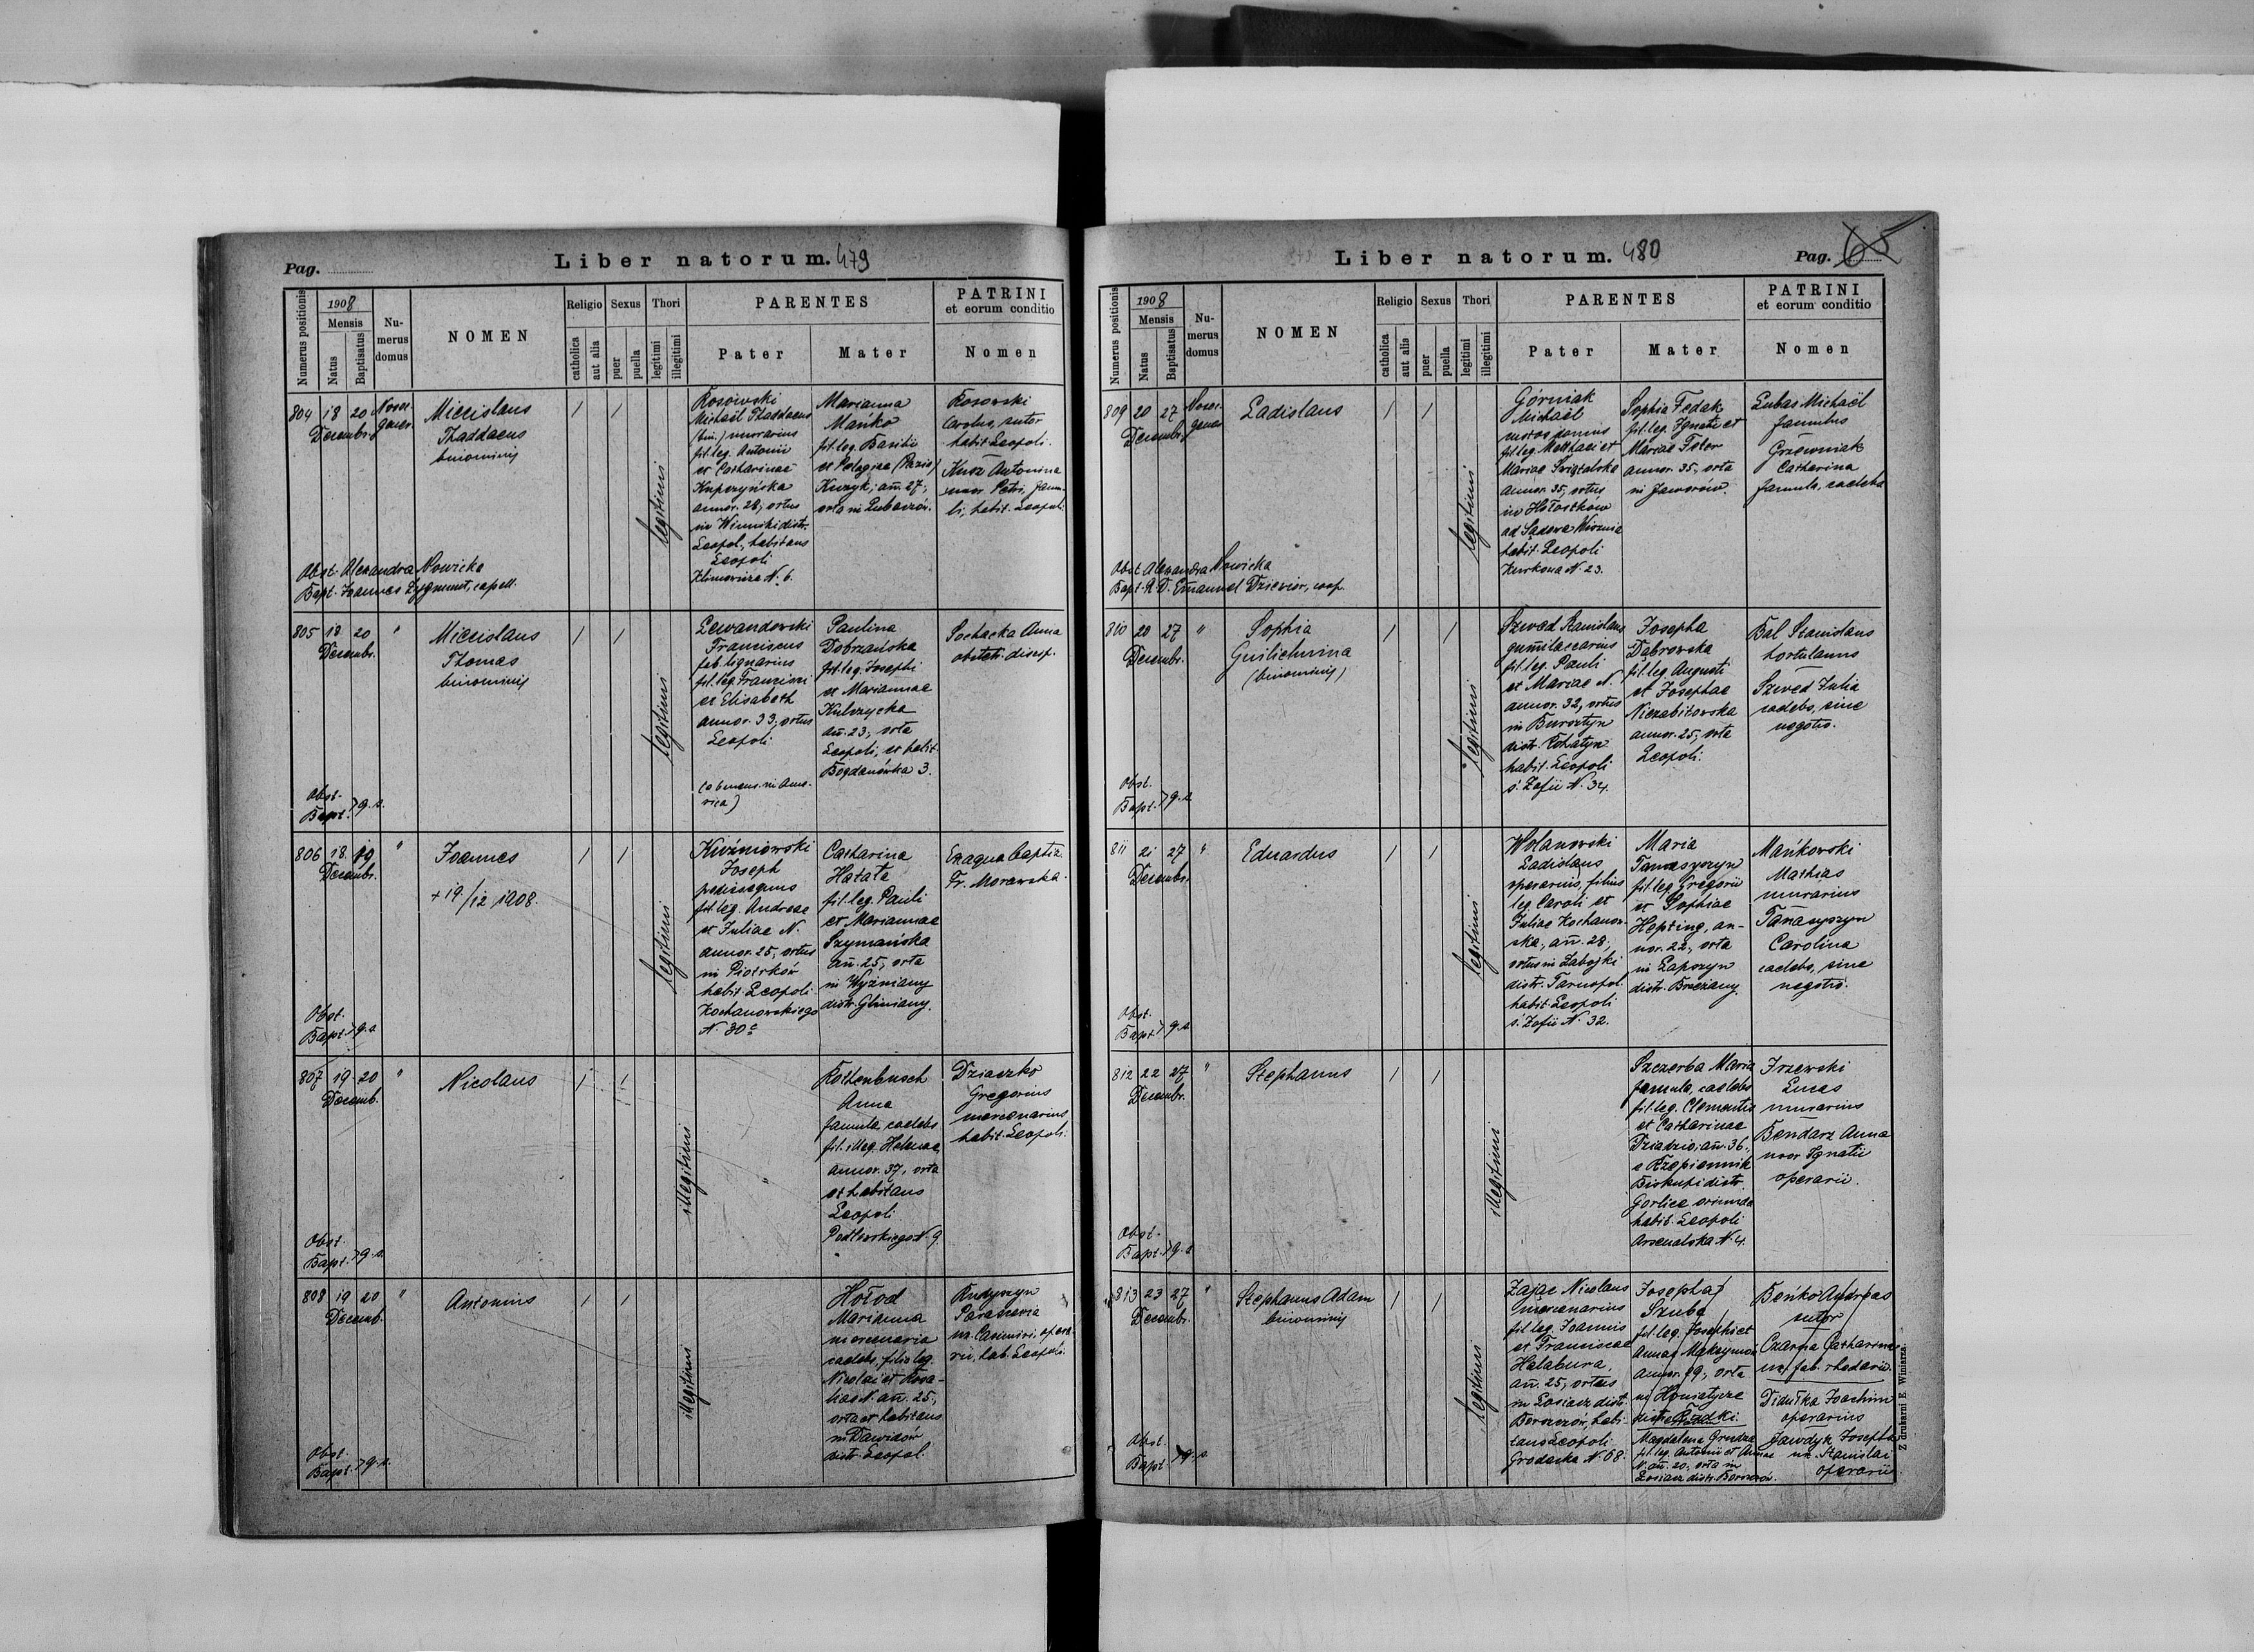 Pag.
Liber natorum. 479
Numerus positionis
1908
Mensis
Natus
Baptisatus
Nu-
merus
domus
NOMEN
Religio
catholica
aut alia
Sexus
puer
puella
Thori
legitimi
illegitimi
PARENTES
Pater
Mater
PATRINI
et eorum conditio
Nomen
804 18 20
Decembr.
Miecislaus
Thaddaeus
binominis
/ /
legitimi
Kosowski
Michaël Thaddaeus
(bin.) murarius
fil. leg. Antonii
et Catharinae
Kupczyńska
annor. 28, ortus
in Winniki distr.
Leopol., habitans
Leopoli
Klimowicza N. 6.
Marianna
Mańko
fil. leg. Basilii
et Pelagiae
Kuzyk, an. 27,
orta in Lubaczów.
Kosowski
Carolus, sutor
habit. Leopoli.
Kusz Antonina
uxor Petri, famu-
li, habit. Leopoli.
Obst. Alexandra Nowicka
Bapt. Joannes Zygmunt, capell.
805 18 20 "
Decembr.
Miecislaus
Thomas
binominis
/ /
legitimi
Lewandowski
Franciscus
fab. lignarius
fil. leg. Francisci
et Elisabeth
annor. 33, ortus
Leopoli.
(abmens. in Ame-
rica)
Paulina
Dobrzańska
fil. leg. Josephi
et Mariannae
Kulczycka
an. 23, orta
Leopoli, et habit.
Bogdanówka 3.
Sochacka Anna
obstetr. discip.
Obst.
Bapt. > q. s.
806 18 19 "
Decembr.
Joannes
+ 19/12 1908.
/ /
legitimi
Kuźniowski
Joseph
pedissequus
fil. leg. Andreae
et Juliae N.
annor. 25, ortus
in Piotrków
habit. Leopoli
Kochanowskiego
N. 80 a
Catharina
Hałała
fil. leg. Pauli
et Mariannae
Szymańska
an. 25, orta
in Wyżniany
distr. Gliniany.
Ex aqua baptiz.
Fr. Morawska.
Obst.
Bapt. > q. s.
807 19 20 "
Decemb.
Nicolaus
/ /
illegitimi
"
Rottenbusch
Anna
famula, caelebs
fil. illeg. Helenae,
annor. 37, orta
et habitans
Leopoli
N. 9.
Dziaczko
Gregorius
mercenarius
habit. Leopoli.
Obst.
Bapt. > q. s.
808 19 20 "
Decemb.
Antonius
/ /
illegitimi
Hołod
Marianna
mercenaria
caelebs, filia leg.
Nicolai et Rosa-
liae N. an. 25,
orta et habitans
in Dawidów
distr. Leopol.
Rudyszyn
Parascevia
ux. Casimiri, opera-
rii, hab. Leopoli.
Obst.
Bapt. > q. s.
Liber natorum. 480
Pag. 65
Numerus positionis
1908
Mensis
Natus
Baptisatus
Nu-
merus
domus
NOMEN
Religio
catholica
aut alia
Sexus
puer
puella
Thori
legitimi
illegitimi
PARENTES
Pater
Mater
PATRINI
et eorum conditio
Nomen
809 20 27
Decembr.
Ladislaus
/ /
legitimi
Górniak
Michaël
custos domus
fil. leg. Matthaei et
Mariae Świątalska
annor. 35, ortus
in Hołostków
ad Sądowa Wisznia
habit. Leopoli
Kurkowa N. 23.
Sophia Fedak
fil. leg. Ignatii et
Mariae Fitor
annor. 35, orta
in Jaworów.
Lubas Michaël
famulus
Grzewniak
Catharina
famula, caelebs
Obst. Alexandra Nowicka
Bapt. R. D. Emanuel Dziewior, coop.
810 20 27 "
Decembr.
Sophia
Guilielmina
(binominis)
/ /
legitimi
Szwed Stanislaus
fil. leg. Pauli
et Mariae N.
annor. 32, ortus
in Bursztyn
distr. Rohatyn
habit. Leopoli
ś. Zofii N. 34.
Josepha
Dąbrowska
fil. leg. Augusti
et Josephae
Niezabitowska
annor. 25, orta
Leopoli.
Bal Stanislaus
hortulanus
Szwed Julia
caelebs, sine
negotio.
Obst.
Bapt. > q. s.
811 21 27 "
Decembr.
Eduardus
/ /
legitimi
Wolanowski
Ladislaus
operarius, filius
leg. Caroli et
Juliae Kochanow-
ska, an. 28,
ortus in Zabojki
distr. Tarnopol
habit. Leopoli
ś. Zofii N. 32.
Maria
Tanasyszyn
fil. leg. Gregorii
et Sophiae
Hepting, an-
nor. 22, orta
in Łapszyn
distr. Brzeżany.
Mańkowski
Mathias
murarius
Tanasyszyn
Carolina
caelebs, sine
negotio.
Obst.
Bapt. > q. s.
812 22 27 "
Decembr.
Stephanus
/ /
illegitimi
Szczerba Maria
famula, caelebs
fil. leg. Clementis
et Catharinae
Dziadzio, an. 36,
e Rzepiennik
Biskupi distr.
Gorlice oriunda
habit. Leopoli
Arsenalska N. 4.
Irzewski
Lucas
murarius
Bendarz Anna
uxor Ignatii
operarii.
Obst.
Bapt. > q. s.
813 23 27 "
Decembr.
Stephanus Adam
binominis
/ /
legitimi
Zając Nicolaus
mercenarius
fil. leg. Joannis
et Franciscae
Halabura,
an. 25, ortus
in Łosiacz distr.
Borszczów, habi-
tans Leopoli
Grodecka N. 68.
Josepha
Szuba
fil. leg. Josephi et
Annae Maksymów
annor. 19, orta
in Honiatycze
distr. Rudki.
Magdalena Grudza
fil. leg. Antonii et Annae
N. an. 20, orta in
Łosiacz distr. Borszczów.
Bońko Andreas
sutor
Czarna Catharina
ux. fab. rhedarii.
Diduška Joachim
operarius
Jawdyk Josepha
ux. Stanislai
operarii
Obst.
Bapt. > q. s.
Z drukarni E. Winiarza.